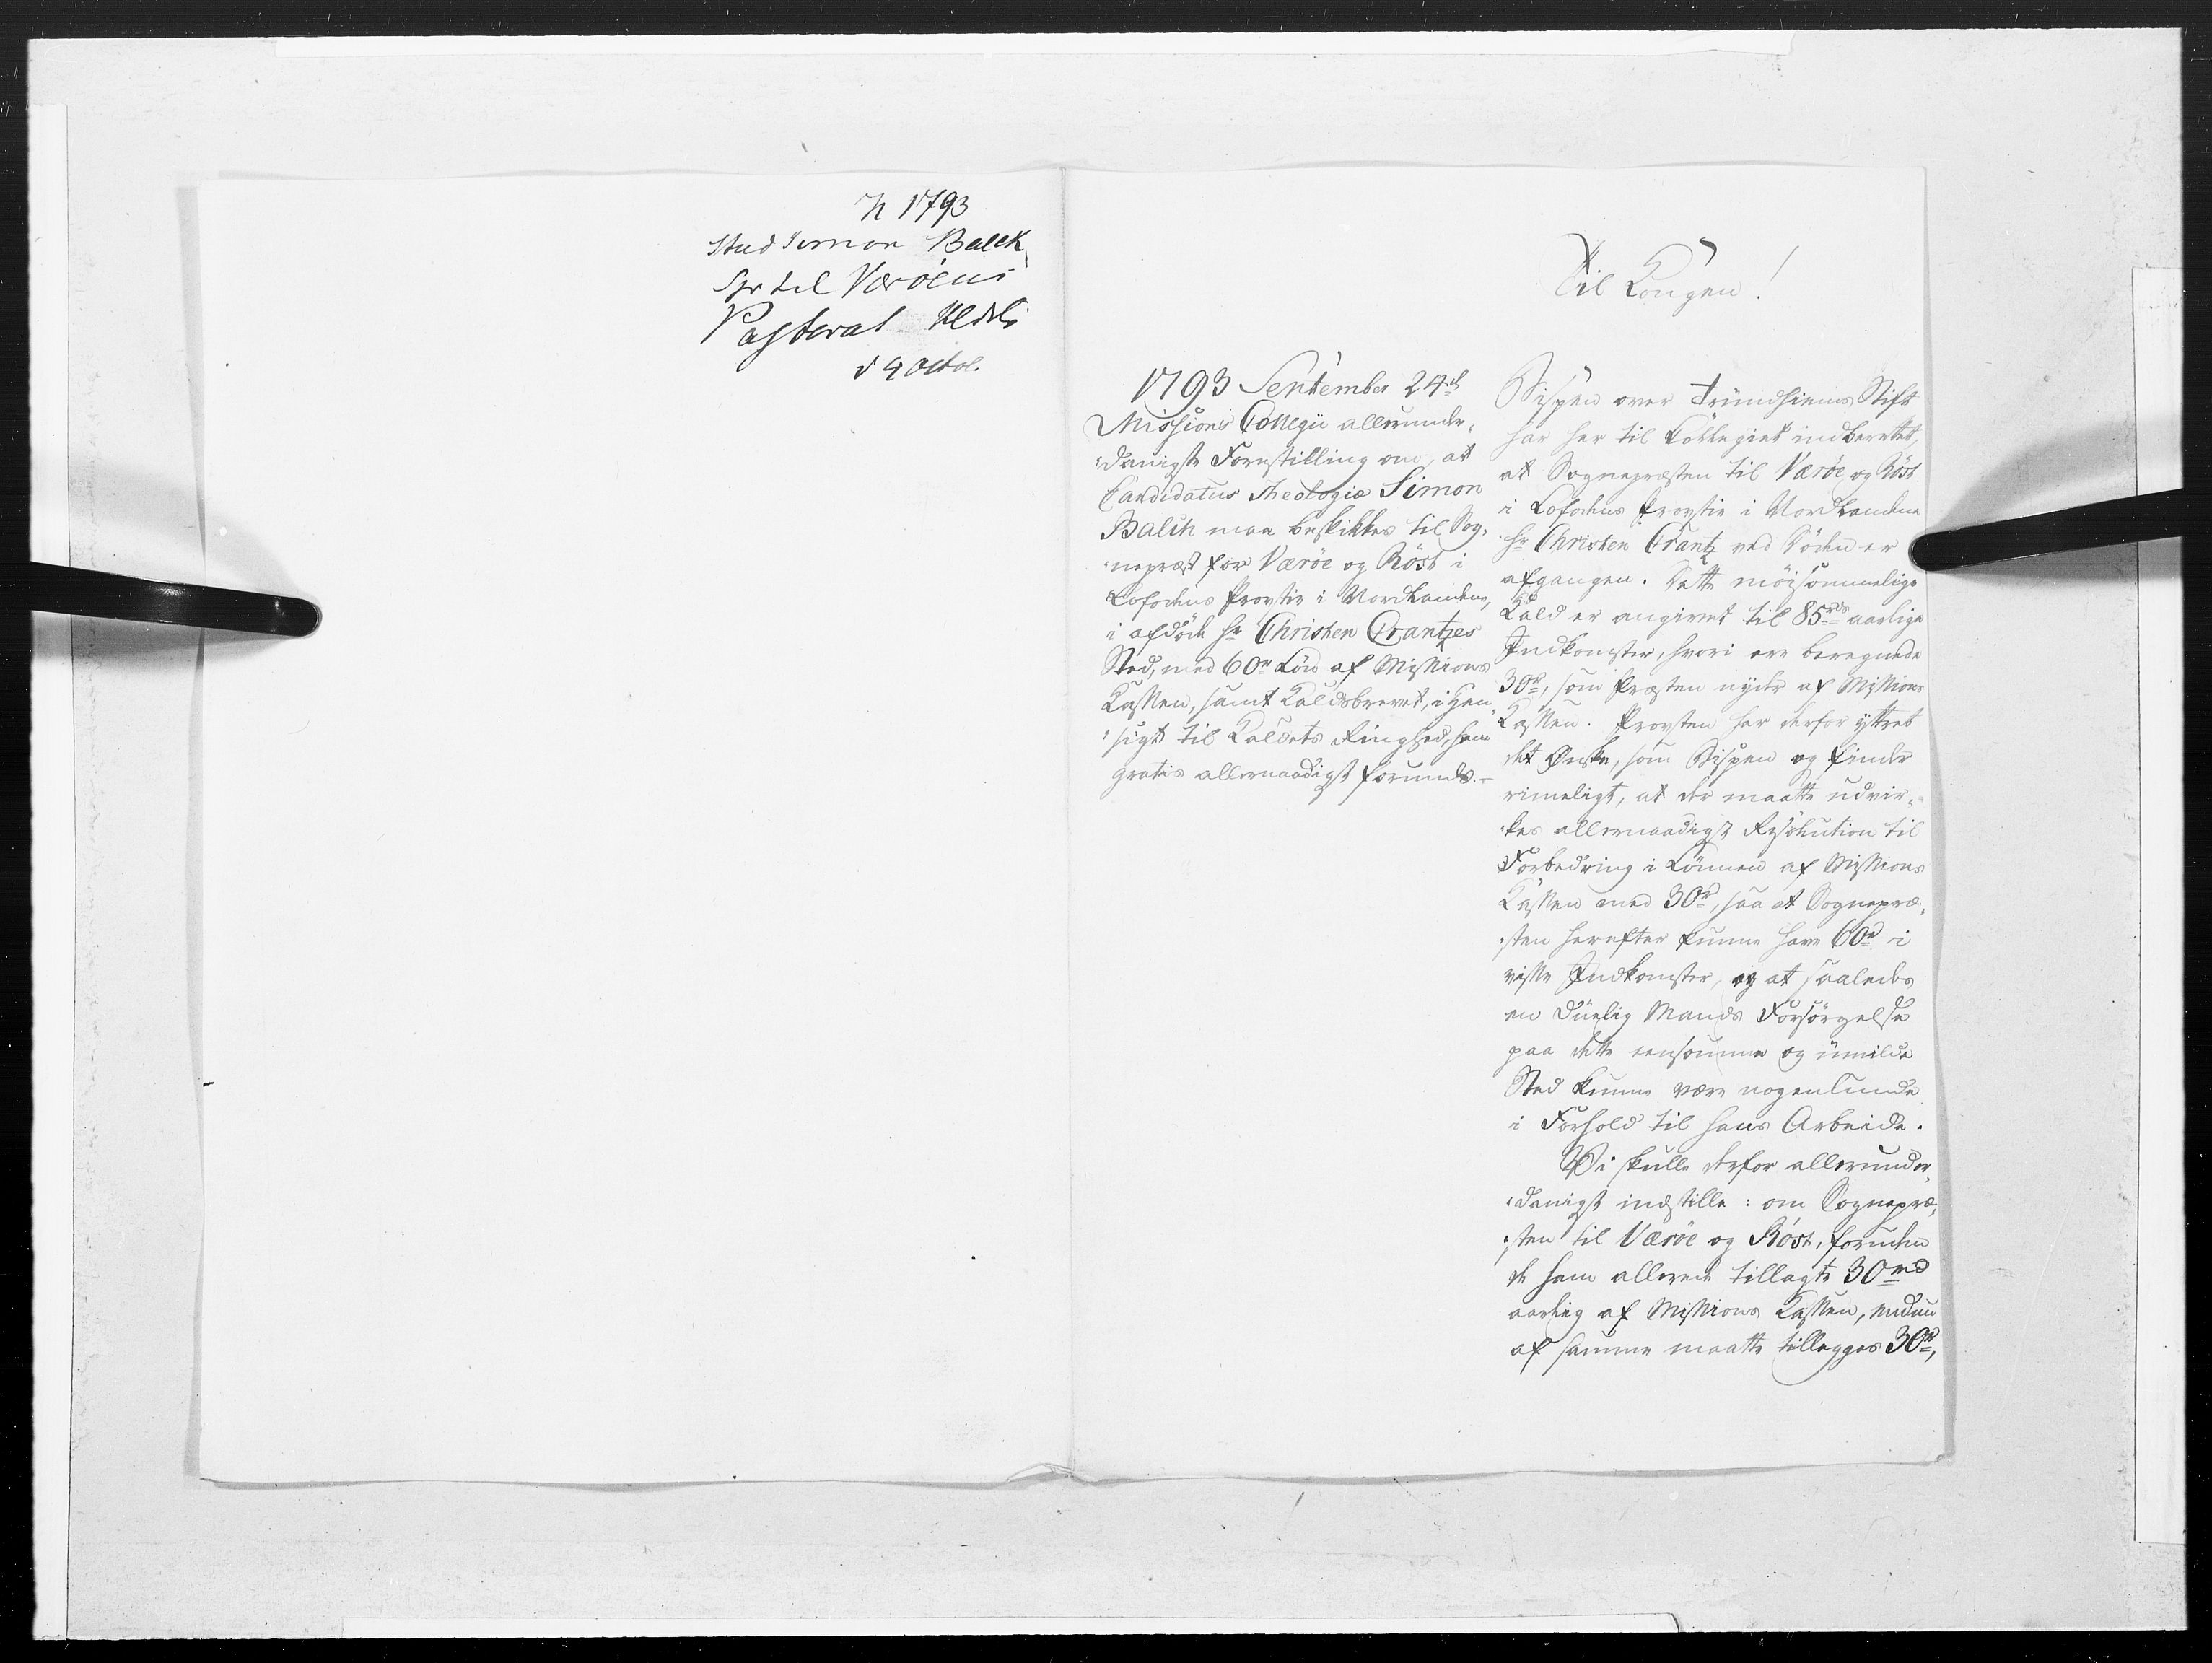 1793
Stud Simon Balck
til Væröens
Pastorat
d 4 Octob.
Til Kongen!
1793 September 24d
Missions Collegii allerunder„
„danigste Forestilling om, at
Candidatus Theologiæ Simon
Balck maa beskikkes til Sog„
„nepræst for Væröe og Röst i
Lofodens Provstie i Nordlandene,
i afdöde Hr Christen Crantzes
Sted, med 60rd Lön af Missions
Kassen, samt Kaldsbrevet, i Hen„
„sigt til Kaldets Ringhed, ham
gratis allernaadigst forundes.
Bispen over Trundhiems Stift
har her til Collegiet indberettet,
at Sognepræsten til Væröe og Röst
i Lofodens Provstie i Nordlandene
Hr Christen Crantz ved Döden er
afgangen. Dette möisommelige
Kald er angivet til 85rds aarlige
Indkomster, hvori ere beregnede
30rd, som Præsten nyder af Missions
Kassen. Provsten har derfor yttret
det Ønske, som Bispen og finder
rimeligt, at der maatte udvir„
„kes allernaadigst Resolution til
Forbedring i Lönnen af Missions
Kassen med 30rd, saa at Sognepræ„
„sten herefter kunne have 60rd i
visse Indkomster, og at saaledes
en duelig Mands Forsörgelse
paa dette eensomme og umilde
Sted kunne være nogenlunde
i Forhold til hans Arbeide.
Vi skulle derfor allerunder„
„danigst indstille: om Sognepræ„
„sten til Væröe og Röst, foruden
de ham allerede tillagte 30rd
aarlig af Missions Kassen, endnu
af samme maatte tillegges 30rd,